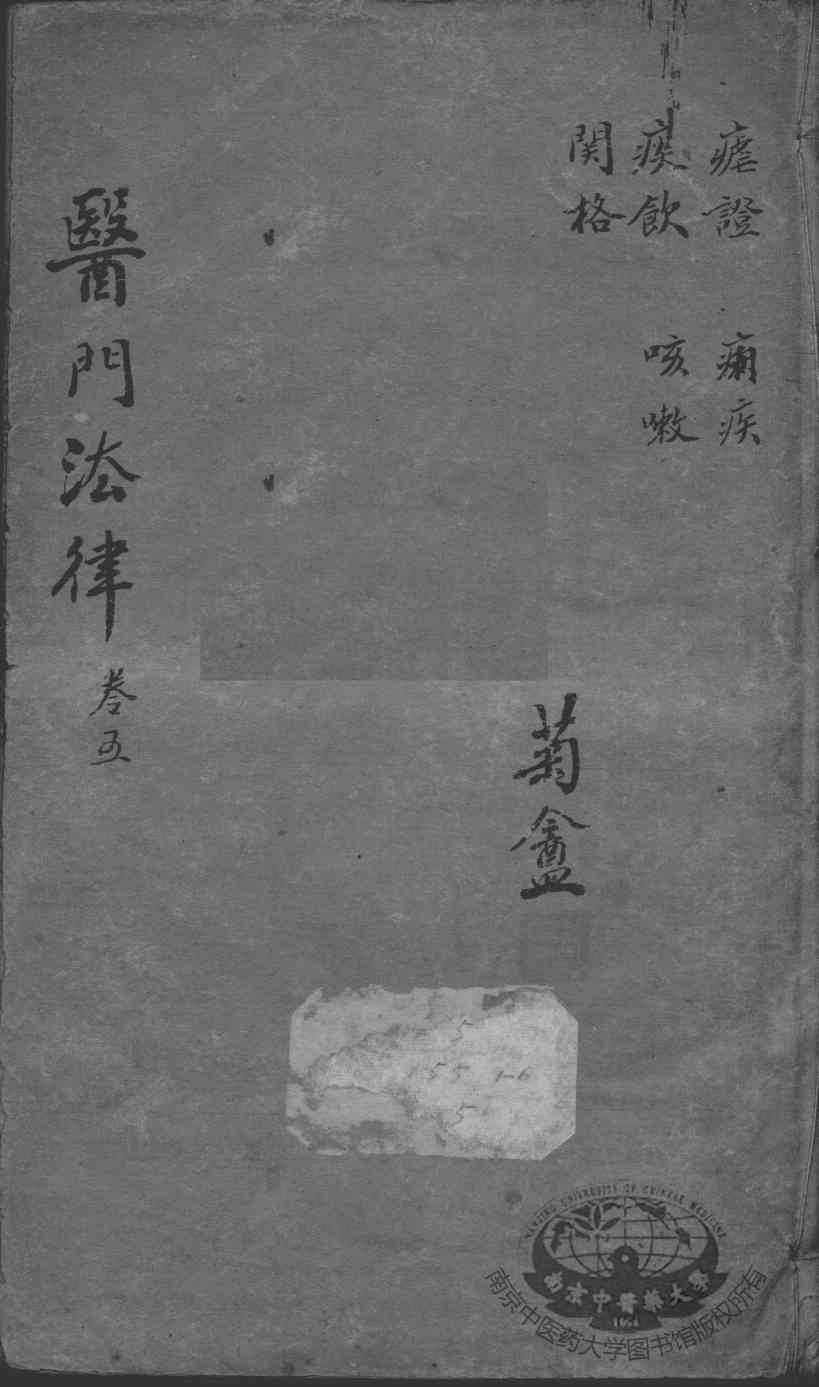 瘧證　痢疾
痰飲　咳嗽
関格
菊盦
醫門法律 卷五
5
155 1-6
5
NANJING UNIVERSITY OF CHINESE MEDICINE
南京中醫藥大學
1954
南京中医药大学图书馆版权所有